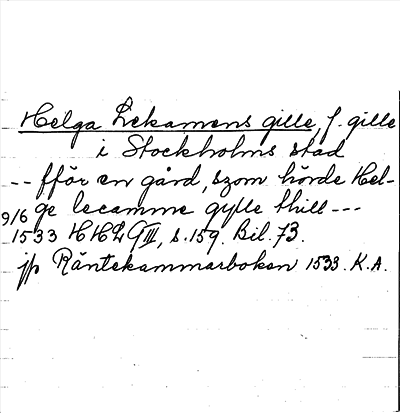 Helga Lekamens gille, f. gille
i Stockholms stad
-- fför en gård, szom hörde Hel-
9/6 ge lecamme gylle thill ---
1533 HHLG III, s. 159. Bil. 73.
jfr Räntekammarboken 1533. K.A.